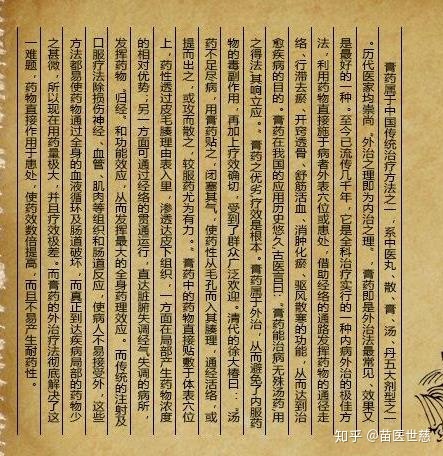 膏药属于中国传统治疗方法之一，系中医丸、散、膏、汤、丹五大剂型之一
。历代医家均崇尚。外治之理即为内治之理。，膏药即是外治法最常见、效果又
是最好的一种。至今已流传几千年，它是全科治疗实行的一种内病外治的极佳方
法，利用药物直接施于病者外表穴位或患处，借助经络的通路发挥药物的通径走
络、行滞去瘀、开窍透骨、舒筋活血、消肿化瘀、驱风散寒的功能，从而达到治
愈疾病的目的。膏药在我国的应用历史悠久,古医言曰:。膏药能治病,无殊汤药,用
之得法,其响立应。。膏药之优劣,疗效是根本。膏药属于外治，从而避免了内服药
物的毒副作用，再加上疗效确切，受到了群众广泛欢迎。清代的徐大椿曰：“汤
药不足尽病，用膏药贴之，闭塞其气，使药性从毛孔而入其腠理，通经活络，或
提而出之，或攻而散之，较服药尤为有力。。膏药中的药物直接贴敷于体表穴位
上，药性透过皮毛腠理由表入里，渗透达皮下组织，一方面在局部产生药物浓度
的相对优势；另一方面可通过经络的贯通运行，直达脏腑失调经气失调的病所，
发挥药物。归经。和功能效应，从而发挥最大的全身药理效应。而传统的注射及
口服疗法除损伤神经、血管、肌肉等组织和肠道反应，使病人不易接受外，这些
方法都易使药物通过全身的血液循环及肠道破坏，而真正到达疾病局部的药物少
之甚微，所以现在用药量极大，并且疗效极差。而膏药的外治疗法彻底解决了这
一难题，药物直接作用于患处，使药效数倍提高，而且不易产生耐药性。
知乎 @苗医世慈